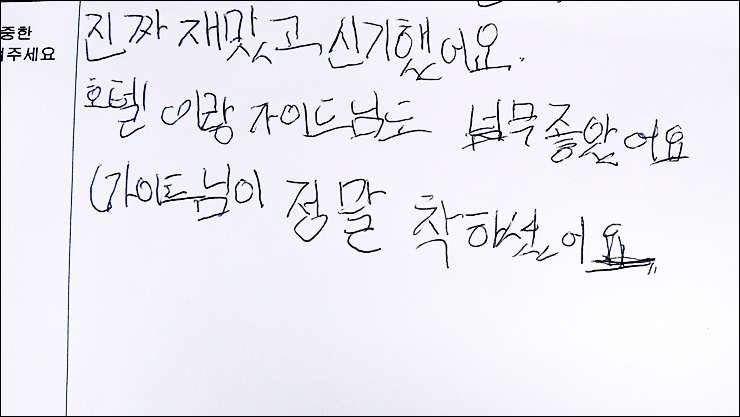 중한
겨주세요
진짜 재맛고 신기했어요.
호텔 이랑 가이드님도 너무좋았어요
(가이드님이 정말 착하셨어요